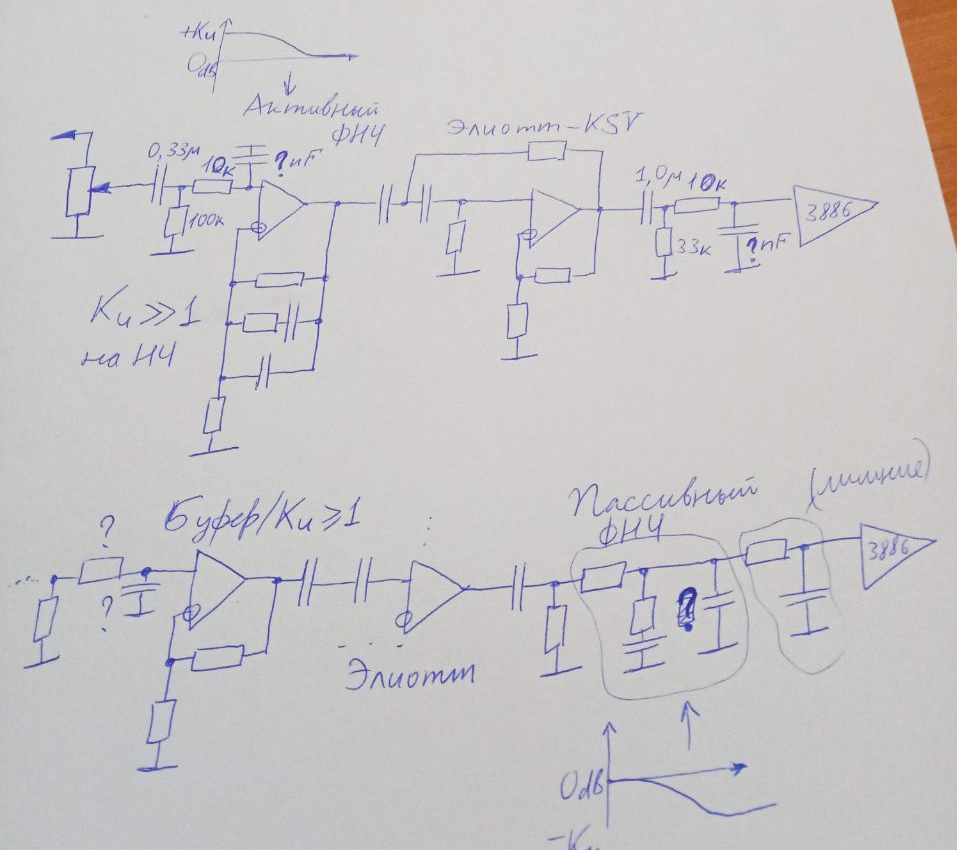 +Kи
0дБ
Активный
ФНЧ
Элиотт-KSV
0,33м
10к
? nF
100к
1,0м
10к
33к
? nF
3886
Kи >> 1
на НЧ
Буфер/Kи ≥ 1
Пассивный
ФНЧ
(лишние)
?
?
...
?
3886
Элиотт
0дВ
-Kи